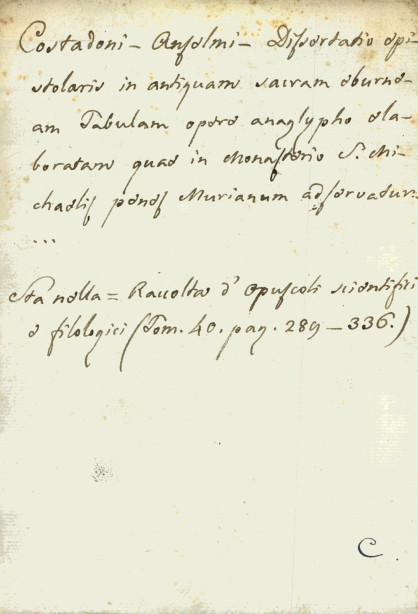 Costadoni - Anselmi - Dissertatio epi-
stolaris in antiquam sacram eburne-
am Tabulam opere anaglypho ela-
boratam quae in Monasterio S. Mi-
chaelis penes Murianum adservatur.
...
Sta nella = Raccolta d' Opuscoli scientifici
e filologici (Tom. 40. pag. 289 - 336.)
C